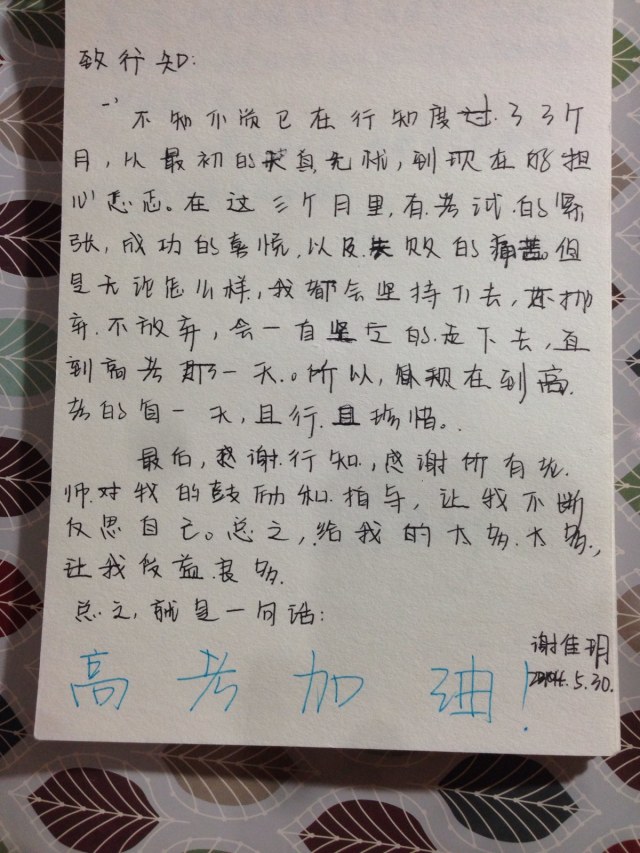 致行知:
不知不觉已在行知度过了3个
月,从最初的天真无忧,到现在的担
心忐忑。在这三个月里,有考试的紧
张,成功的喜悦,以及失败的痛苦。但
是无论怎么样,我都会坚持下去,不抛
弃.不放弃,会一直坚定的走下去,直
到高考那一天。所以,从现在到高
考的每一天,且行且珍惜。
最后,感谢行知,感谢所有老
师对我的鼓励和指导,让我不断
反思自己。总之,给我的太多太多,
让我受益良多.
总之,就是一句话:
谢佳玥
5.30.
高考加油!